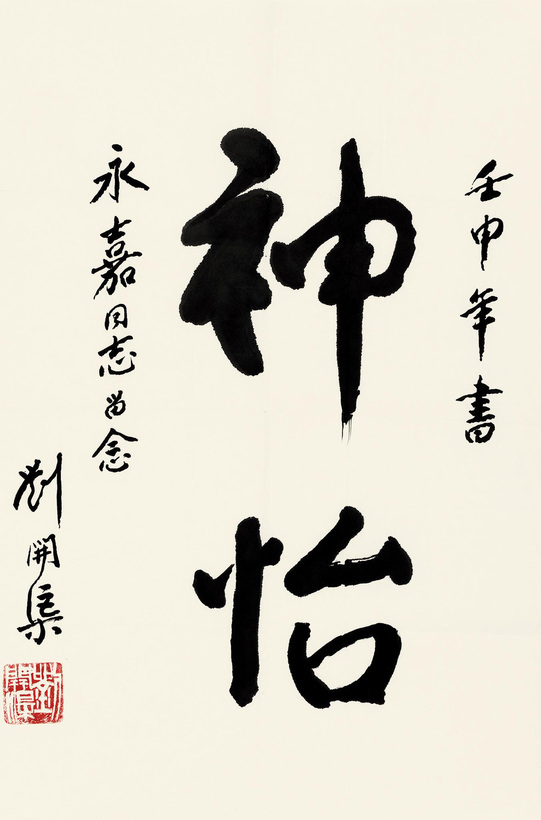 壬申年書
神怡
永嘉同志留念
劉開渠
劉開渠